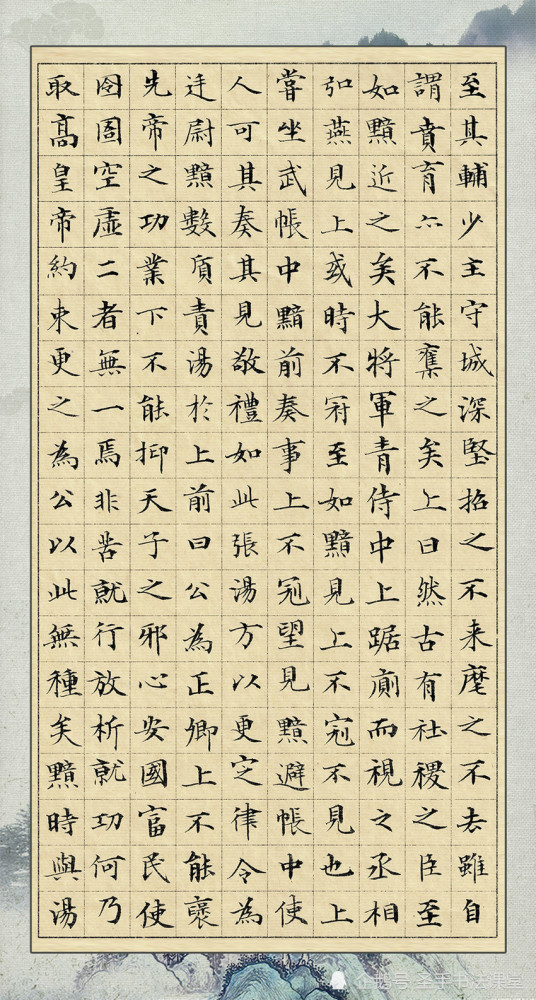 至其輔少主守城深堅招之不来麾之不去雖自
謂賁育亦不能奪之矣上曰然古有社稷之臣至
如黯近之矣大將軍青侍中上踞廁而視之丞相
弘燕見上或時不冠至如黯見上不冠不見也上
嘗坐武帳中黯前奏事上不冠望見黯避帳中使
人可其奏其見敬禮如此張湯方以更定律令為
廷尉黯數質責湯於上前曰公為正卿上不能襃
先帝之功業下不能抑天子之邪心安國富民使
囹圄空虛二者無一焉非苦就行放析就功何乃
取高皇帝約束更之為公以此無種矣黯時與湯
企鹅号